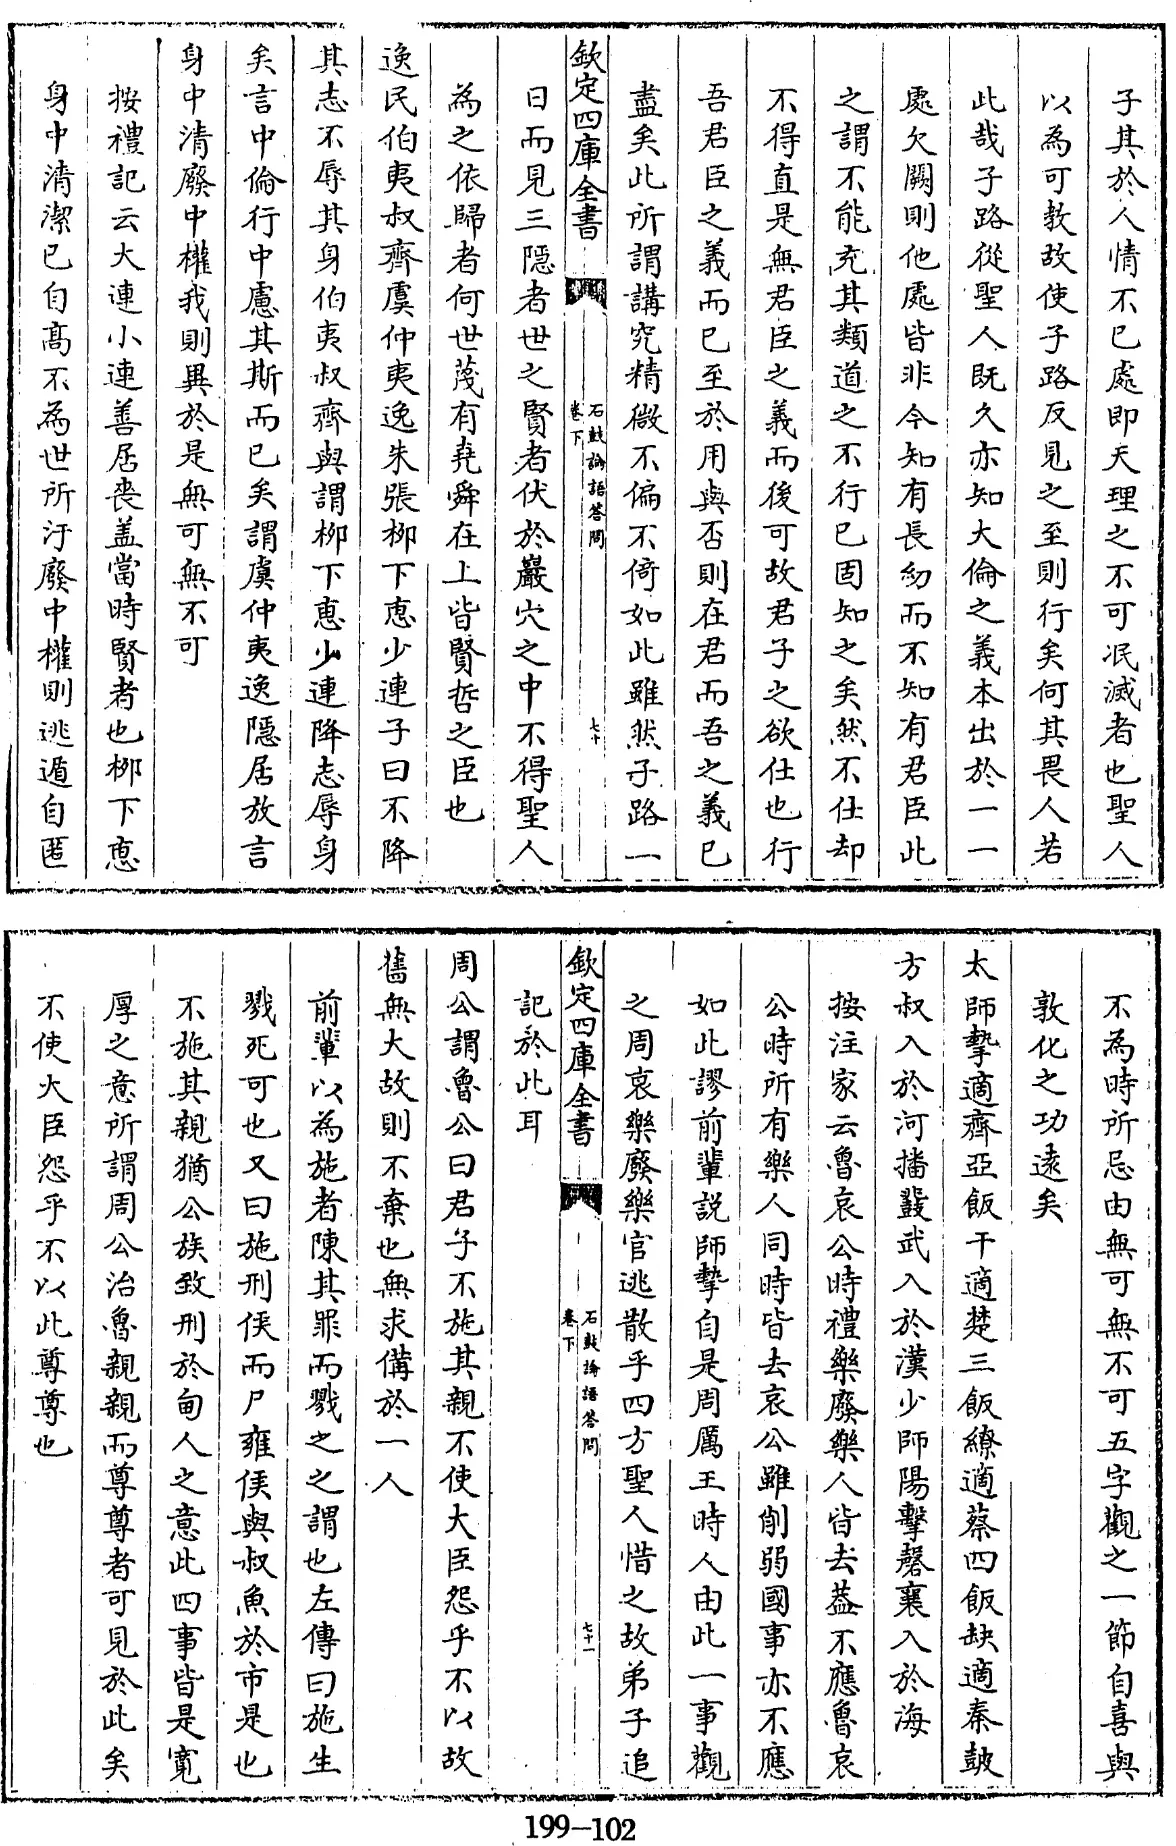 子其於人情不已處即天理之不可泯滅者也聖人
以為可教故使子路反見之至則行矣何其畏人若
此哉子路從聖人既久亦知大倫之義本出於一一
處欠闕則他處皆非今知有長幼而不知有君臣此
之謂不能充其類道之不行已固知之矣然不仕却
不得直是無君臣之義而後可故君子之欲仕也行
吾君臣之義而已至於用與否則在君而吾之義已
盡矣此所謂講究精微不偏不倚如此雖然子路一
欽定四庫全書
石鼓論語答問
卷下
七十
日而見三隠者世之賢者伏於巖穴之中不得聖人
為之依歸者何世蔑有堯舜在上皆賢哲之臣也
逸民伯夷叔齊虞仲夷逸朱張栁下惠少連子曰不降
其志不辱其身伯夷叔齊與謂栁下惠少連降志辱身
矣言中倫行中慮其斯而已矣謂虞仲夷逸隱居放言
身中清廢中權我則異於是無可無不可
按禮記云大連小連善居喪盖當時賢者也栁下惠
身中清潔已自高不為世所汙廢中權則逃遁自匿
不為時所忌由無可無不可五字觀之一節自喜與
敦化之功逺矣
太師摯適齊亞飯干適楚三飯繚適蔡四飯缺適秦鼓
方叔入於河播鼗武入於漢少師陽擊磬襄入於海
按注家云魯哀公時禮樂廢樂人皆去葢不應魯哀
公時所有樂人同時皆去哀公雖削弱國事亦不應
如此謬前輩説師摯自是周厲王時人由此一事觀
之周衰樂廢樂官逃散乎四方聖人惜之故弟子追
欽定四庫全書
石鼓論語答問
卷下
七十一
記於此耳
周公謂魯公曰君子不施其親不使大臣怨乎不以故
舊無大故則不棄也無求備於一人
前輩以為施者陳其罪而戮之之謂也左傳曰施生
戮死可也又曰施刑侯而尸雍侯與叔魚於市是也
不施其親猶公族致刑於甸人之意此四事皆是寛
厚之意所謂周公治魯親親而尊尊者可見於此矣
不使大臣怨乎不以此尊尊也
199-102